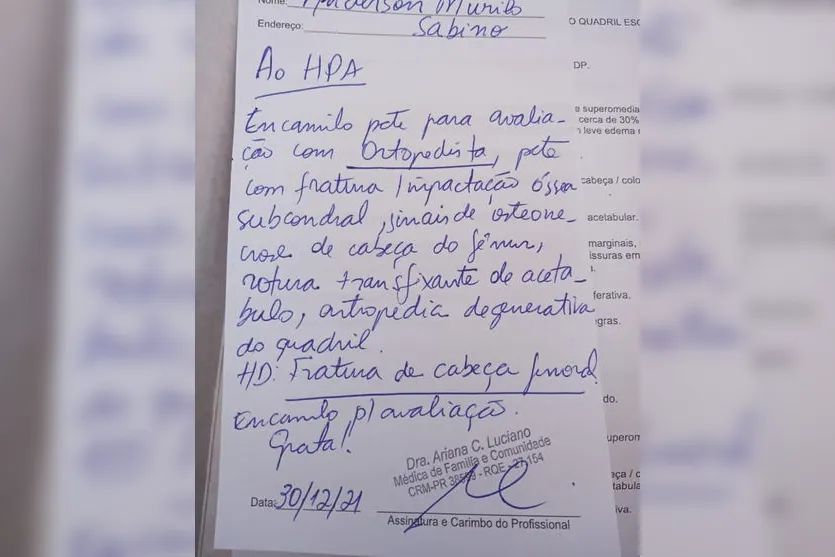 Nome: Anderson Murilo
Endereço: Sabino
O QUADRIL ESQ
Ao HPA
DP.
Encamilo pcte para avalia-
ção com Ortopedista, pcte
com fratura impactação óssea
subcondral, sinais de osteone-
crose de cabeça do fêmur,
rotura transfixante de aceta-
bulo, artropedia degenerativa
do quadril.
HD: Fratura de cabeça femoral
Encamilo p/ avaliação.
Grata!
superomedia
cerca de 30%
leve edema
cabeça / colo
acetabular.
marginais,
issuras em
ferativa.
egras.
do.
uperom
aça / c
tabula
iva.
Dra. Ariana C. Luciano
Médica de Família e Comunidade
CRM-PR - RQE - 27.154
Data: 30/12/21
Assinatura e Carimbo do Profissional